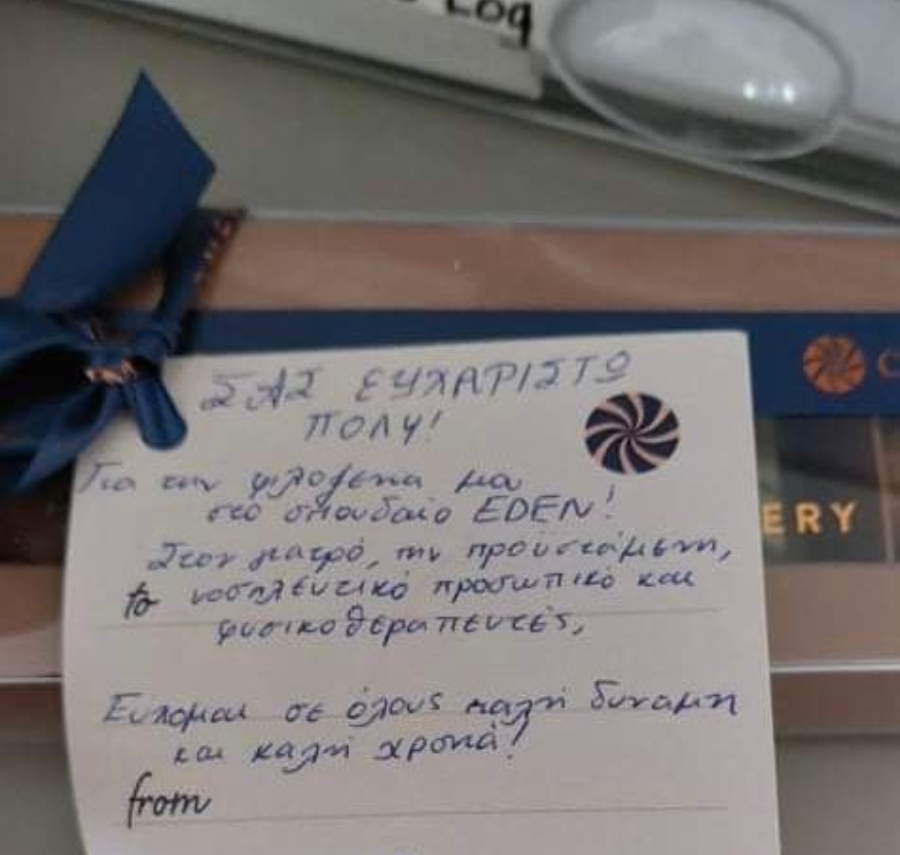 Log
ΣΑΣ ΕΥΧΑΡΙΣΤΩ
ΠΟΛΥ!
Για την φιλοξενια μα
στο σπουδαίο EDEN!
Στον γιατρό, την προϋστάμενη,
to νοσηλευτικό προσωπικό και
φυσικοθεραπευτές,
Ευχομαι σε όλους καλη δυναμη
και καλή χρονιά!
from
ERY
C